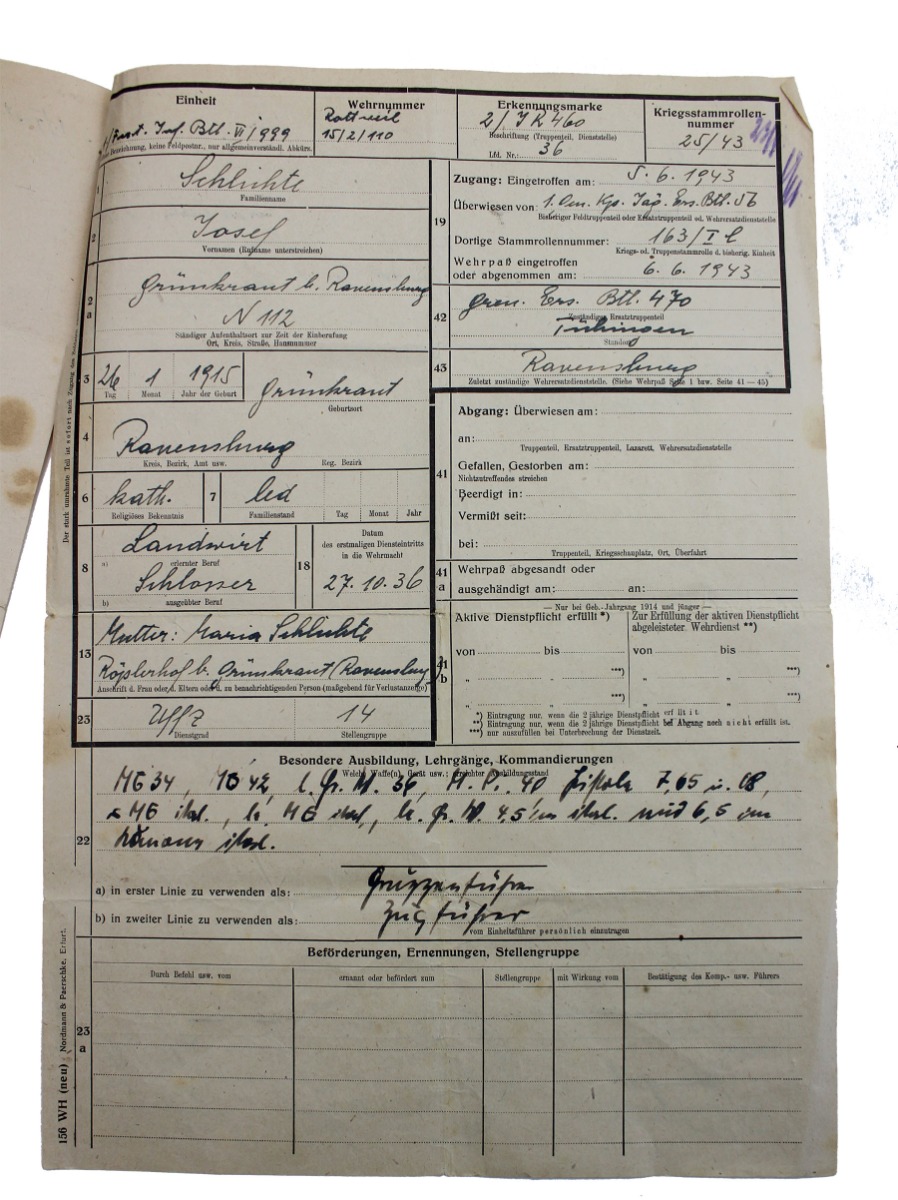 Einheit
Inf. Btl. VI/999
Bezeichnung, keine Feldpostnr., nur allgemeinverständl. Abkürz.
Wehrnummer
Rottweil
15/2/110
Erkennungsmarke
2/JR 460
Beschriftung (Truppenteil, Dienststelle)
36
Lfd. Nr.:
Kriegsstammrollen-
nummer
25/43
1
Schlichte
Familienname
2
Josef
Vornamen (Rufname unterstreichen)
2
a
Grünkraut b. Ravensburg
N 112
Ständiger Aufenthaltsort zur Zeit der Einberufung
Ort, Kreis, Straße, Hausnummer
3
26 1 1915
Tag Monat Jahr der Geburt
Grünkraut
Geburtsort
4
Ravensburg
Kreis, Bezirk, Amt usw. Reg. Bezirk
6
kath.
Religiöses Bekenntnis
7
led
Familienstand Tag Monat Jahr
8
Landwirt
a) erlernter Beruf
Schlosser
b) ausgeübter Beruf
18
Datum
des erstmaligen Diensteintritts
in die Wehrmacht
27.10.36
13
Mutter: Maria Schlichte
b. Grünkraut (Ravensburg)
Anschrift d. Frau oder d. Eltern oder d. zu benachrichtigenden Person (maßgebend für Verlustanzeige)
23
Uffz
Dienstgrad
14
Stellengruppe
19
Zugang: Eingetroffen am: 5.6.1943
Überwiesen von: 1. Gen. Kp. Jäg. Ers. Btl. 56
Bisheriger Feldtruppenteil oder Ersatztruppenteil od. Wehrersatzdienststelle
Dortige Stammrollennummer: 163/I
Kriegs- od. Truppenstammrolle d. bisherig. Einheit
Wehrpaß eingetroffen
oder abgenommen am: 6.6.1943
42
Gren. Ers. Btl. 470
Zuständiger Ersatztruppenteil
Tübingen
Standort
43
Ravensburg
Zuletzt zuständige Wehrersatzdienststelle. (Siehe Wehrpaß Seite 1 bzw. Seite 41—45)
41
Abgang: Überwiesen am:
an:
Truppenteil, Ersatztruppenteil, Lazarett, Wehrersatzdienststelle
Gefallen, Gestorben am:
Nichtzutreffendes streichen
Beerdigt in:
Vermißt seit:
bei:
Truppenteil, Kriegsschauplatz, Ort, Überfahrt
41
a
Wehrpaß abgesandt oder
ausgehändigt am: an:
— Nur bei Geb.-Jahrgang 1914 und jünger —
41
b
Aktive Dienstpflicht erfüllt *)
von bis
„ „ ***)
„ „ ***)
Zur Erfüllung der aktiven Dienstpflicht
abgeleisteter Wehrdienst **)
von bis
„ „ ***)
„ „ ***)
*) Eintragung nur, wenn die 2 jährige Dienstpflicht erfüllt
**) Eintragung nur, wenn die 2 jährige Dienstpflicht bei Abgang noch nicht erfüllt ist.
***) nur auszufüllen bei Unterbrechung der Dienstzeit.
Besondere Ausbildung, Lehrgänge, Kommandierungen
Welche Waffe(n), Gerät usw.; erreichter Ausbildungsstand
22
MG 34, MG 42, l. Gr. W. 36, M. P. 40 Pistole 7,65 u. 08,
MG ital., MG ital., Gr. W. 4,5 cm ital. und 6,5 cm
ital.
a) in erster Linie zu verwenden als: Gruppenführer
b) in zweiter Linie zu verwenden als: Zugführer
vom Einheitsführer persönlich einzutragen
Beförderungen, Ernennungen, Stellengruppe
23
a
Durch Befehl usw. vom
ernannt oder befördert zum
Stellengruppe
mit Wirkung vom
Bestätigung des Komp.- usw. Führers
Der stark umrahmte Teil ist sofort nach Zugang des
156 WH (neu) Nordmann & Paerschke, Erfurt.